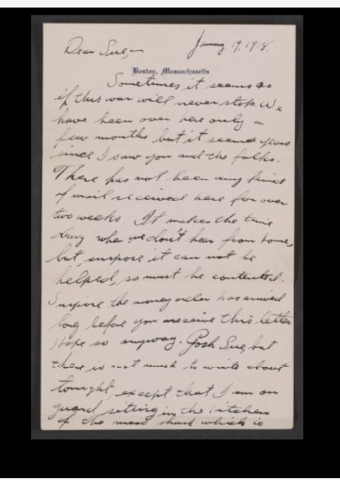 Jany 9, 1918.
Dear Sue,
Boston, Massachusetts
Sometimes it seems as
if this war will never stop. We
have been over here only a
few months but it seems years
since I saw you and the folks.
There has not been any kind
of mail received here for over
two weeks. It makes the time
drag when we don't hear from home,
but, suppose it can not be
helped, so must be contented.
Suppose the money order has arrived
long before you receive this letter
Hope so anyway. Gosh Sue, but
there is not much to write about
tonight, except that I am on
guard sitting in the kitchen
of the mess shack which is